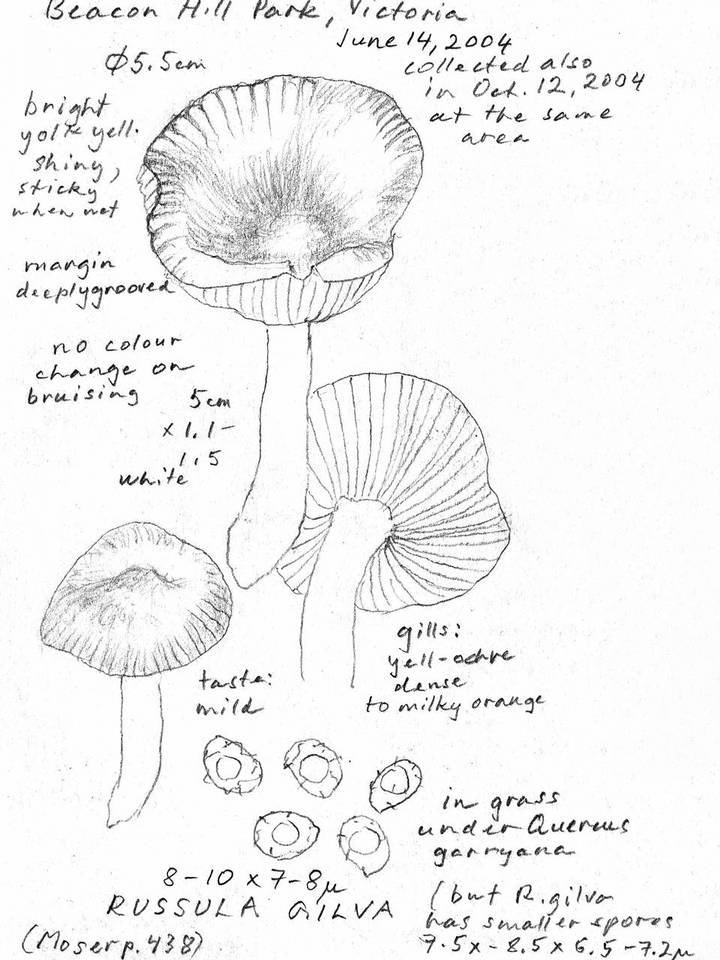 Beacon Hill Park, Victoria
June 14, 2004
collected also
in Oct. 12, 2004
at the same
area
Ø5.5cm
bright
yolk yell.
shiny,
sticky
when wet
margin
deeply grooved
no colour
change on
bruising
5cm
x 1.1-
1.5
white
gills:
yell-ochre
dense
to milky orange
taste:
mild
in grass
under Quercus
garryana
8-10 x 7-8µ
RUSSULA GILVA
(Moser p. 438)
(but R. gilva
has smaller spores
7.5x-8.5x6.5-7.2µ